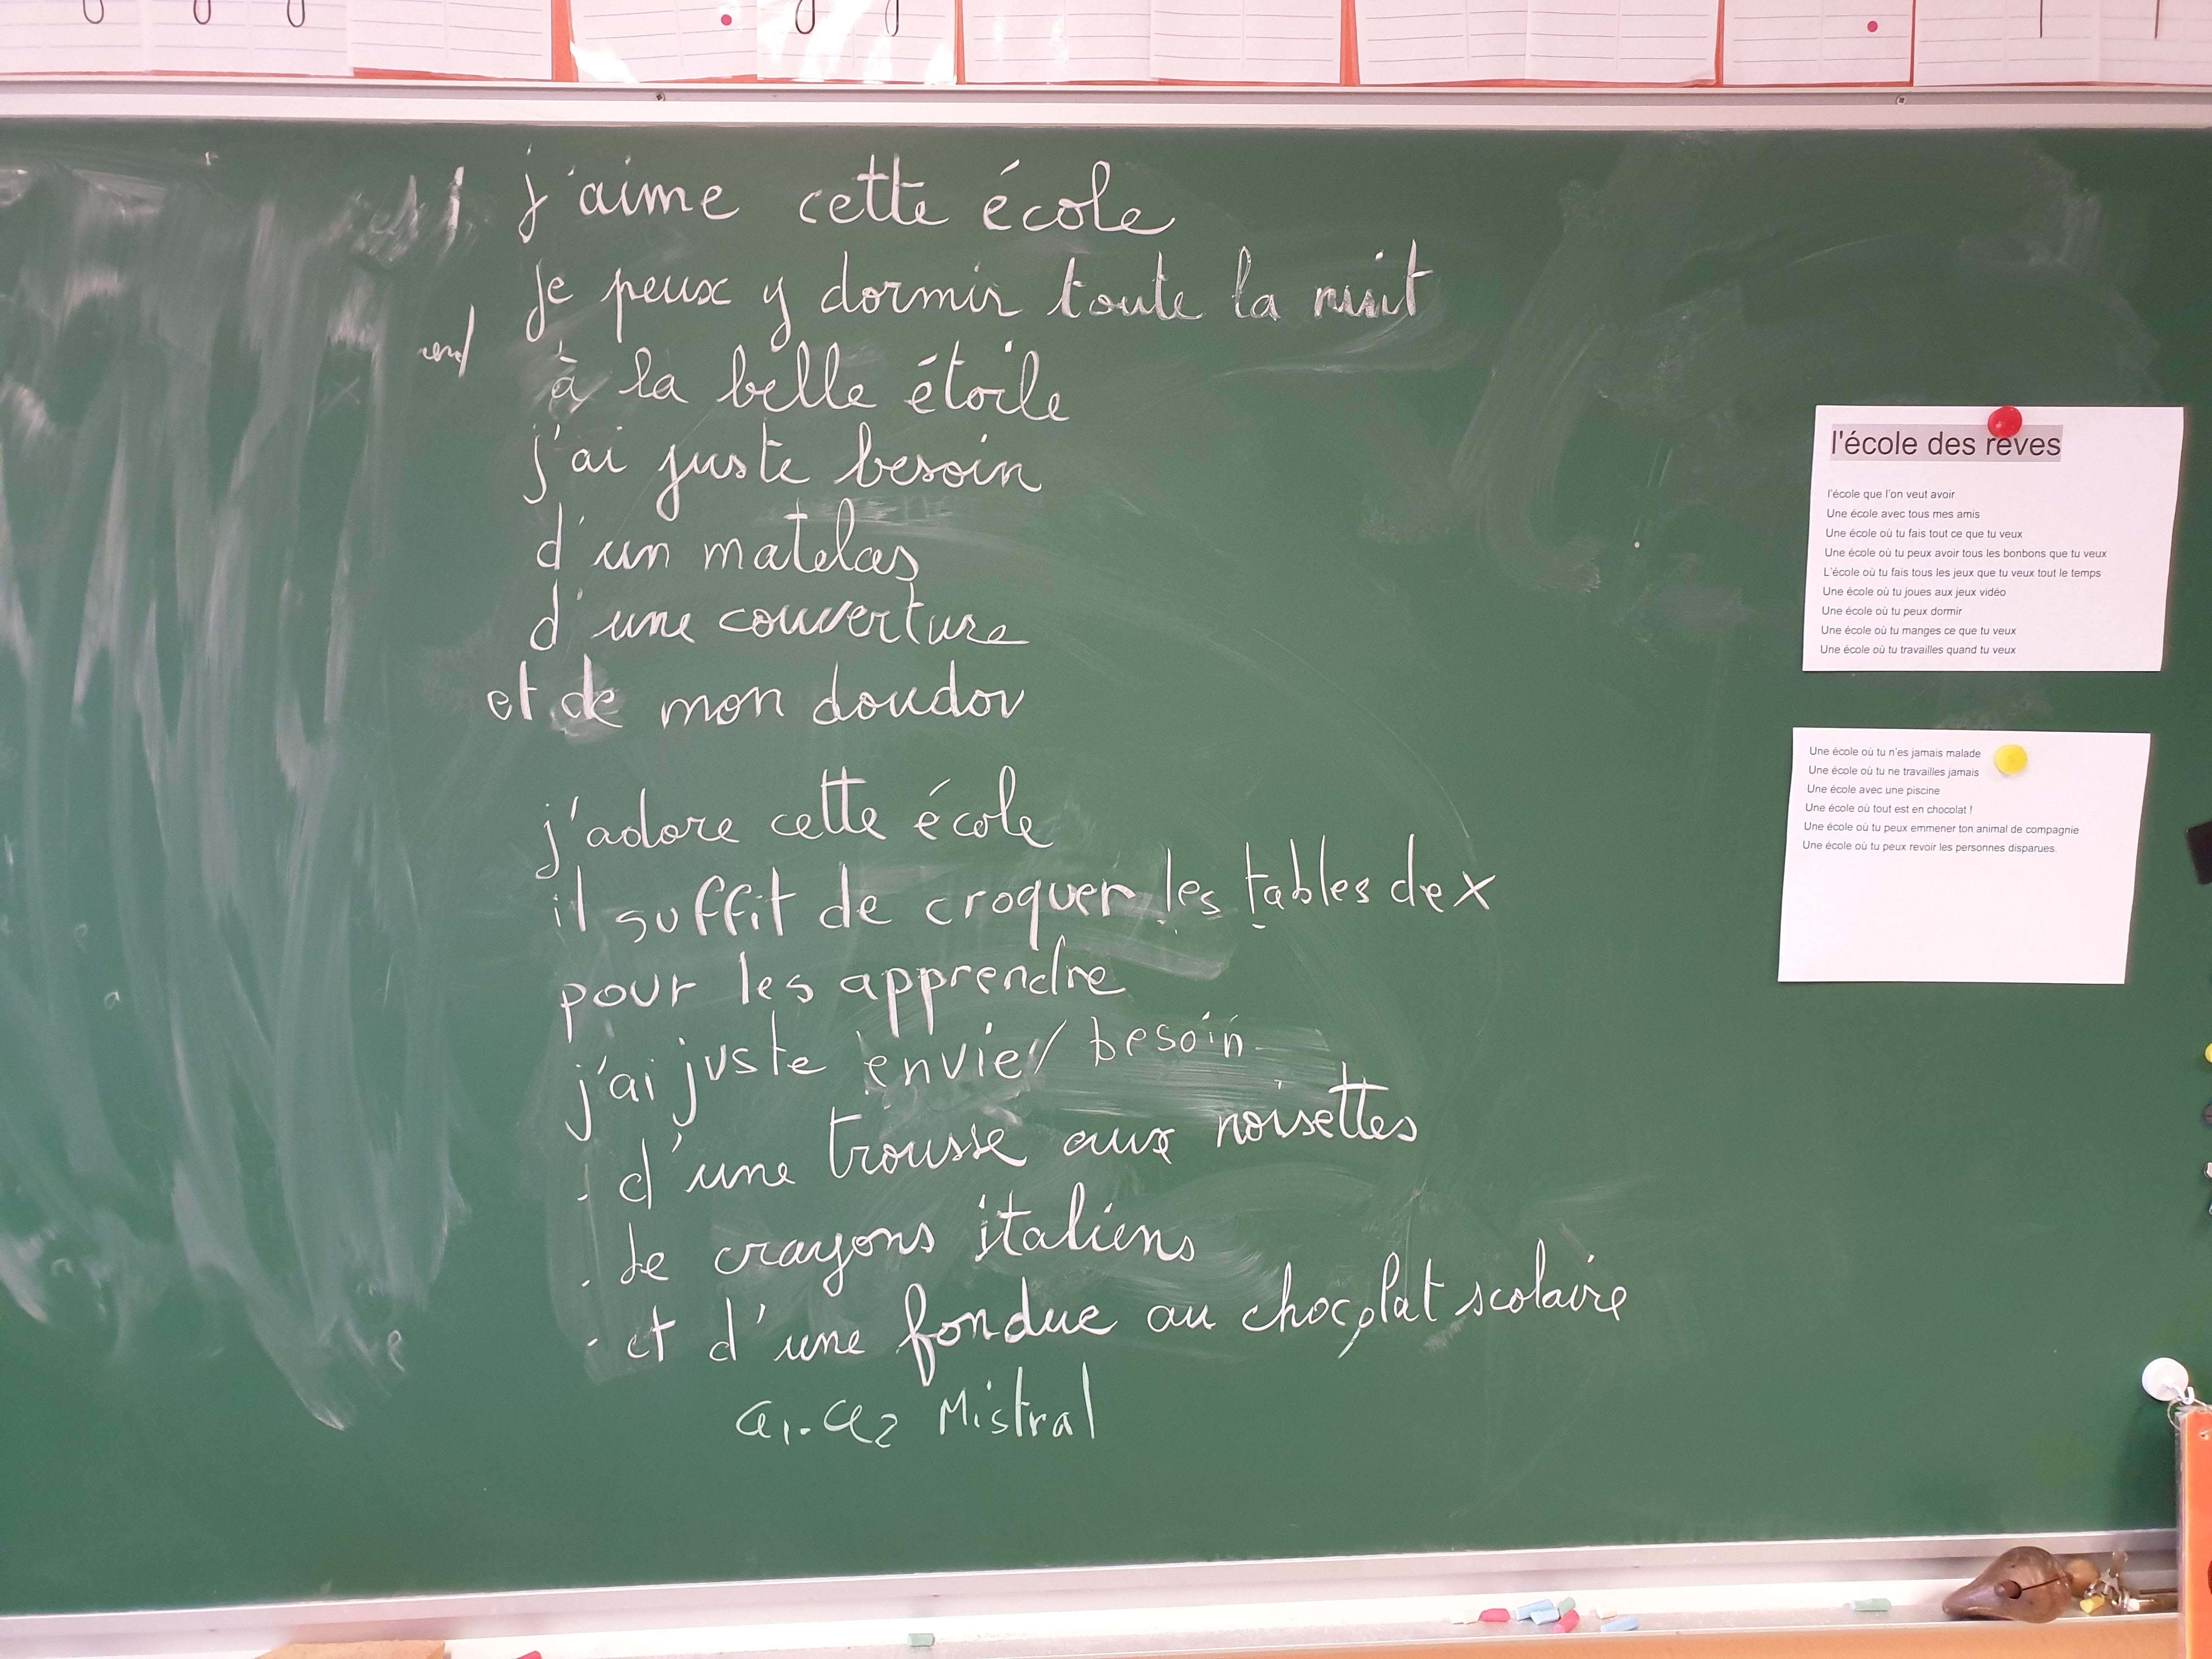 j'aime cette école
je peux y dormir toute la nuit
à la belle étoile
j'ai juste besoin
d'un matelas
d'une couverture
et de mon doudou
j'adore cette école
il suffit de croquer les tables de x
pour les apprendre
j'ai juste envie / besoin
. d'une trousse aux noisettes
. de crayons italiens
. et d'une fondue au chocolat scolaire
Mistral
l'école des rêves
l'école que l'on veut avoir
Une école avec tous mes amis
Une école où tu fais tout ce que tu veux
Une école où tu peux avoir tous les bonbons que tu veux
L'école où tu fais tous les jeux que tu veux tout le temps
Une école où tu joues aux jeux vidéo
Une école où tu peux dormir
Une école où tu manges ce que tu veux
Une école où tu travailles quand tu veux
Une école où tu n'es jamais malade
Une école où tu ne travailles jamais
Une école avec une piscine
Une école où tout est en chocolat !
Une école où tu peux emmener ton animal de compagnie
Une école où tu peux revoir les personnes disparues.